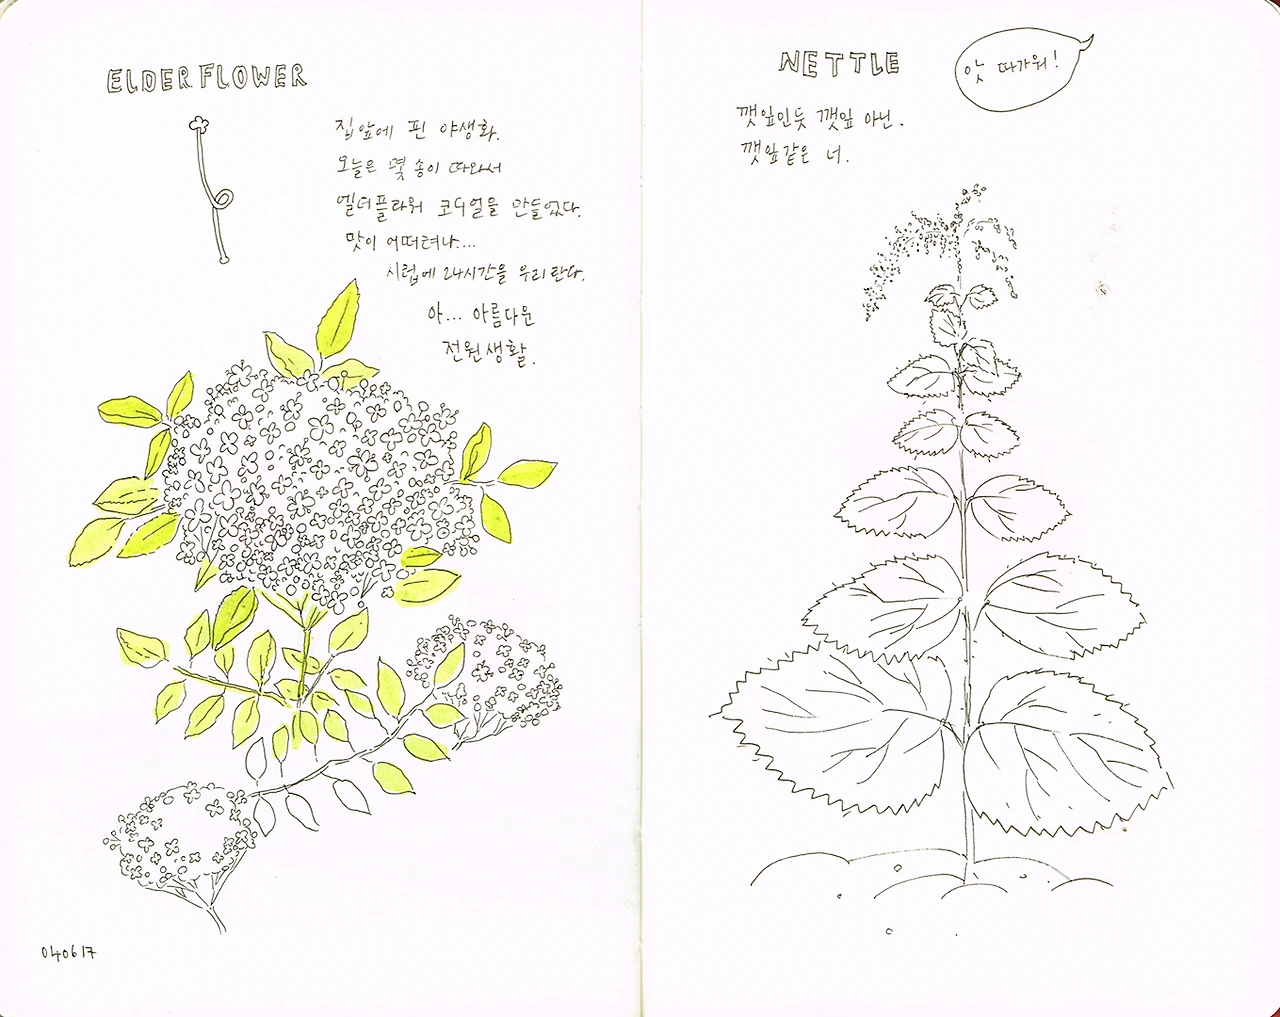 ELDERFLOWER
집앞에 핀 야생화.
오늘은 몇 송이 따와서
엘더플라워 코디얼을 만들었다.
맛이 어떠려나....
시럽에 24시간을 우리란다.
아... 아름다운
전원생활.
040617
NETTLE
앗 따가워!
깻잎인듯 깻잎 아닌.
깻잎같은 너.